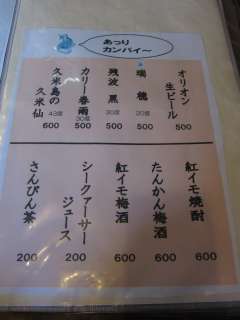 あっり
カンパイ～
オリオン
生ビール
500
瑞穂
20度
500
残波黒
30度
500
カリー春雨
30度
500
久米島の
久米仙
43度
600
紅イモ焼酎
600
たんかん梅酒
600
紅イモ梅酒
600
シークァーサー
ジュース
200
さんぴん茶
200